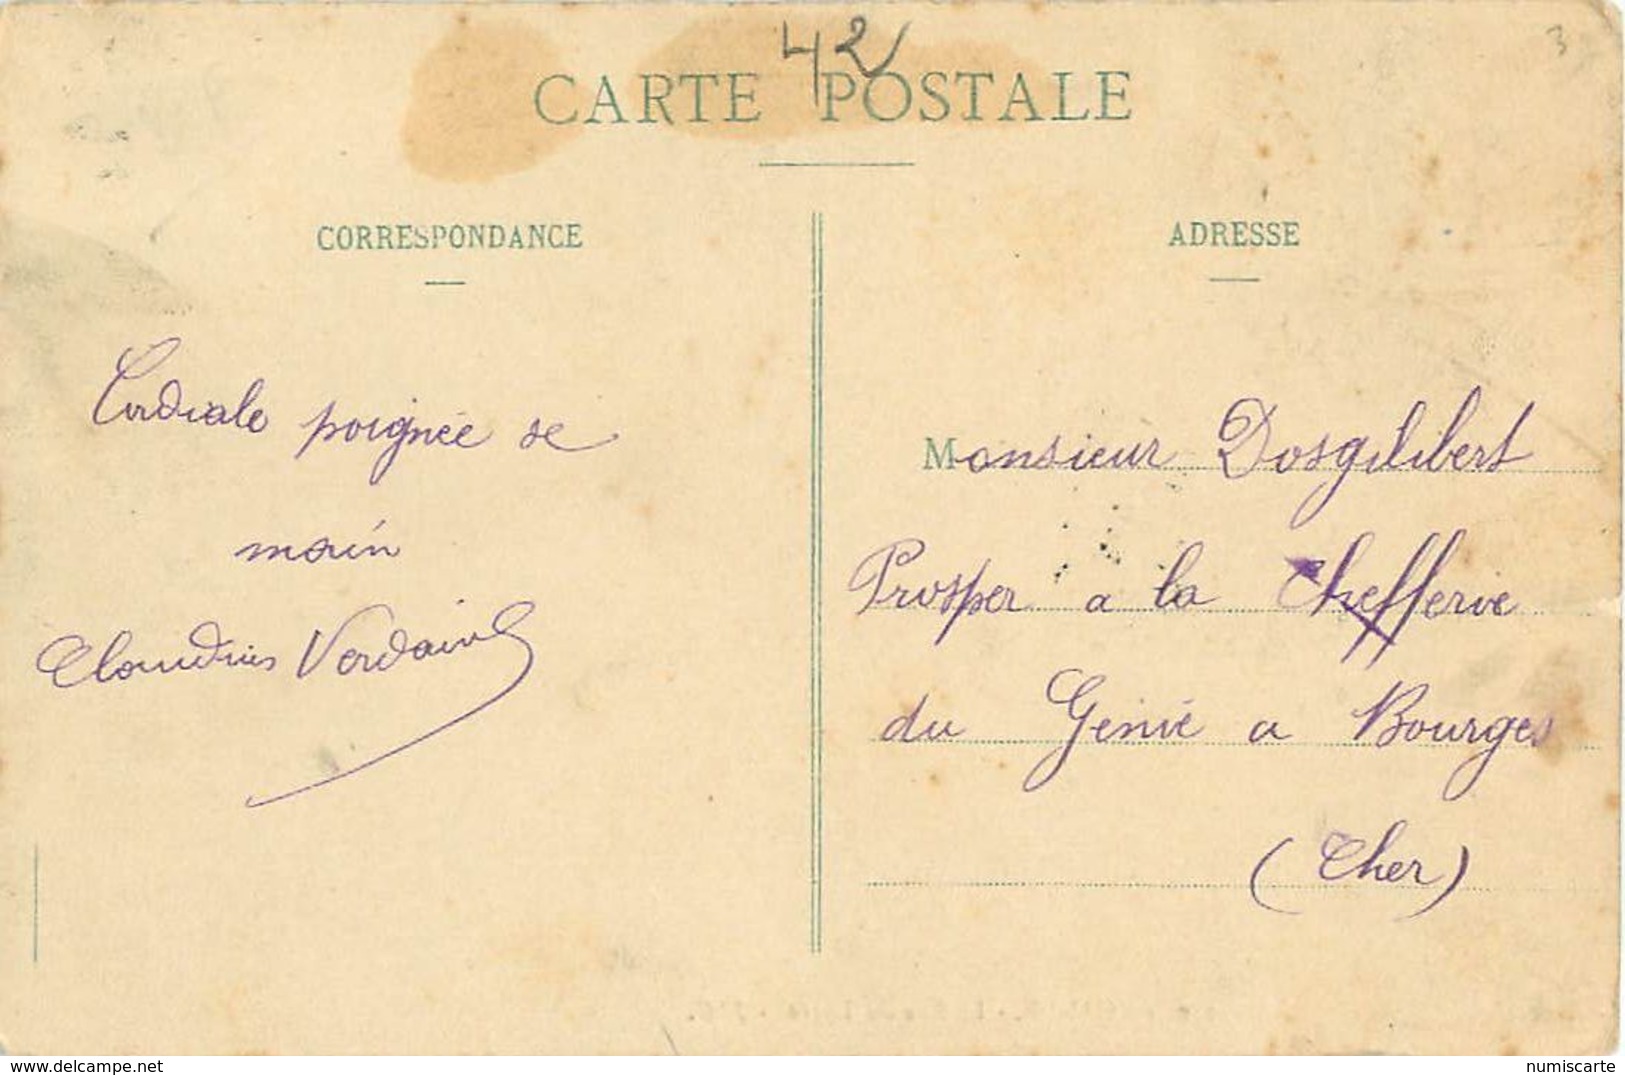 42
3
CARTE POSTALE
CORRESPONDANCE
Cordiale poignée de
main
Claudius Verdain
ADRESSE
Monsieur Dosgilibert
Prosper a la Chefferie
du Génie a Bourges
(Cher)
www.delcampe.net
numiscarte